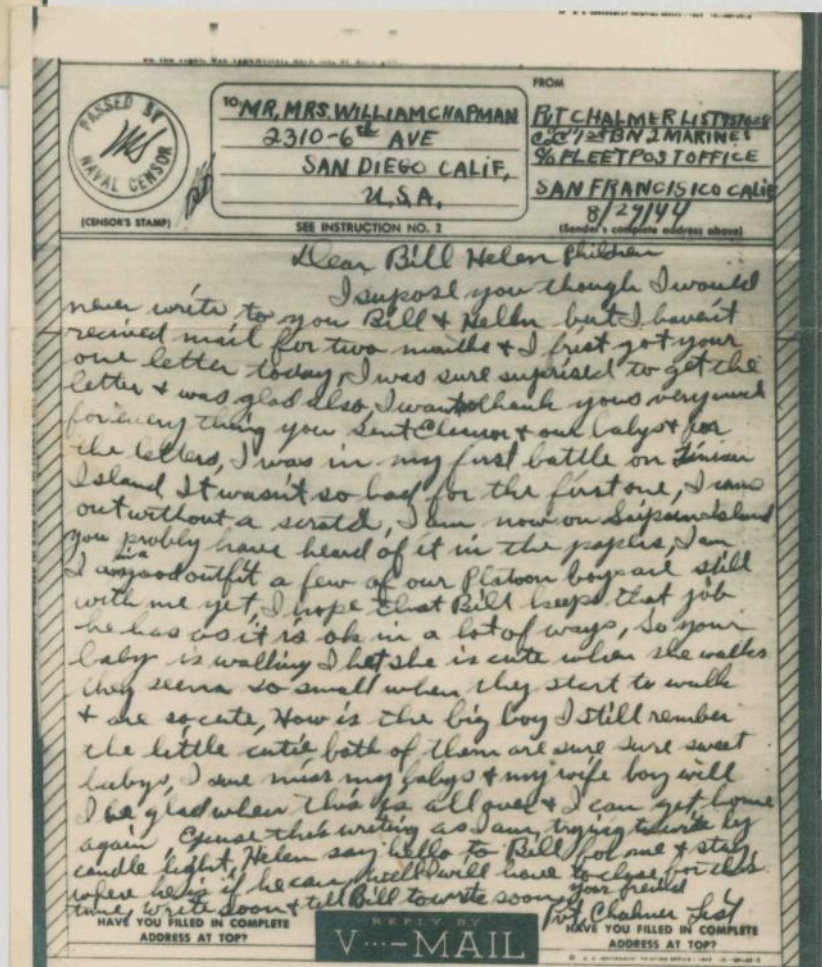 PASSED BY
NAVAL CENSOR
(CENSOR'S STAMP)
TO MR, MRS. WILLIAM CHAPMAN
2310-6th AVE
SAN DIEGO CALIF,
U.S.A.
SEE INSTRUCTION NO. 2
FROM
PVT CHALMER LIST
"C" 1st BN 2 MARINES
c/o FLEET POST OFFICE
SAN FRANCISICO CALIF
8/29/44
(Sender's complete address above)
Dear Bill Helen & children
I supose you though I would
never write to you Bill & Helen but I haven't
recived mail for two months & I frist got your
one letter today, I was sure suprised to get the
letter & was glad also, I want to thank yous very much
for every thing you sent Elenor & our babys & for
the letters, I was in my first battle on Tinian
Island It wasn't so bad for the first one, I came
out without a scratch, I am now on Saipan island
you probly have heard of it in the papers, I am
I am in a good outfit a few of our Platoon boys are still
with me yet, I hope that Bill keeps that job
he has as it is ok in a lot of ways, So your
baby is walking I bet she is cute when she walks
they seem so small when they start to walk
& are so cute, How is the big boy I still rember
the little cutie, both of them are sure sure sweet
babys, I sure miss my babys & my wife boy will
I be glad when this is all over & I can get home
again, Excuse this writing as I am trying to write by
candle light, Helen say hello to Bill for me & stay
where he is if he can, Well I will have to close for this
time, write soon & tell Bill to write soon, your friend
Pvt. Chalmer List
HAVE YOU FILLED IN COMPLETE
ADDRESS AT TOP?
REPLY BY
V···-MAIL
HAVE YOU FILLED IN COMPLETE
ADDRESS AT TOP?